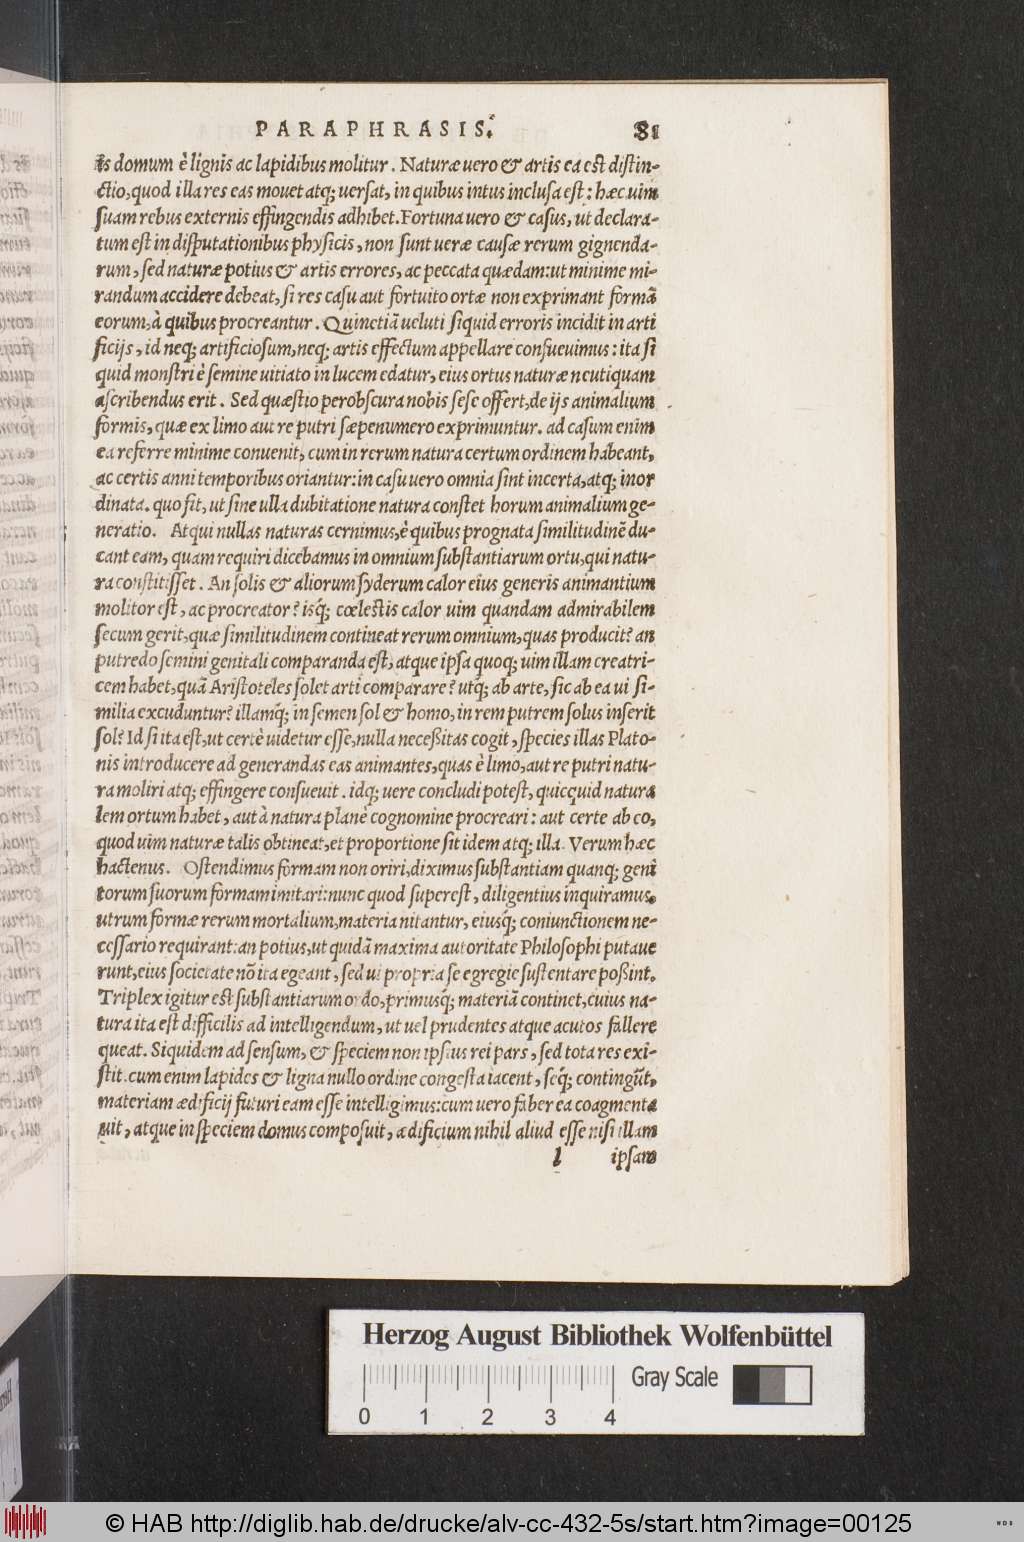 PARAPHRASIS. 81
is domum è lignis ac lapidibus molitur. Naturæ uero & artis ea est distin-
ctio, quod illa res eas mouet atq; uersat, in quibus intus inclusa est: hæc uim
suam rebus externis effingendis adhibet. Fortuna uero & casus, ut declara-
tum est in disputationibus physicis, non sunt ueræ causæ rerum gignenda-
rum, sed naturæ potius & artis errores, ac peccata quædam: ut minime mi-
randum accidere debeat, si res casu aut fortuito ortæ non exprimant formã
eorum, à quibus procreantur. Quinetiã ueluti siquid erroris incidit in arti
ficijs, id neq; artificiosum, neq; artis effectum appellare consueuimus: ita si
quid monstri è semine uitiato in lucem edatur, eius ortus naturæ neutiquam
ascribendus erit. Sed quæstio perobscura nobis sese offert, de ijs animalium
formis, quæ ex limo aut re putri sæpenumero exprimuntur. ad casum enim
ea referre minime conuenit, cum in rerum natura certum ordinem habeant,
ac certis anni temporibus oriantur: in casu uero omnia sint incerta, atq; inor
dinata. quo fit, ut sine ulla dubitatione natura constet horum animalium ge-
neratio. Atqui nullas naturas cernimus, è quibus prognata similitudinẽ du-
cant eam, quam requiri dicebamus in omnium substantiarum ortu, qui natu-
ra constitisset. An solis & aliorum syderum calor eius generis animantium
molitor est, ac procreator? isq́; cœlestis calor uim quandam admirabilem
secum gerit, quæ similitudinem contineat rerum omnium, quas producit? an
putredo semini genitali comparanda est, atque ipsa quoq; uim illam creatri-
cem habet, quã Aristoteles solet arti comparare? utq́; ab arte, sic ab ea ui si-
milia excuduntur? illamq́; in semen sol & homo, in rem putrem solus inserit
sol? Id si ita est, ut certè uidetur esse, nulla neceßitas cogit, species illas Plato-
nis introducere ad generandas eas animantes, quas è limo, aut re putri natu-
ra moliri atq; effingere consueuit. idq; uere concludi potest, quicquid natura
lem ortum habet, aut à natura planè cognomine procreari: aut certe ab eo,
quod uim naturæ talis obtineat, et proportione sit idem atq; illa. Verum hæc
hactenus. Ostendimus formam non oriri, diximus substantiam quanq; geni
torum suorum formam imitari: nunc quod superest, diligentius inquiramus,
utrum formæ rerum mortalium, materia nitantur, eiusq́; coniunctionem ne-
cessario requirant: an potius, ut quidã maxima autoritate Philosophi putaue
runt, eius societate nõ ita egeant, sed ui propria se egregie sustentare poßint.
Triplex igitur est substantiarum ordo, primusq́; materiã continet, cuius na-
tura ita est difficilis ad intelligendum, ut uel prudentes atque acutos fallere
queat. Siquidem ad sensum, & speciem non ipsius rei pars, sed tota res exi-
stit. cum enim lapides & ligna nullo ordine congesta iacent, seq́; contingũt,
materiam ædificij futuri eam esse intelligimus: cum uero faber ea coagmenta
uit, atque in speciem domus composuit, ædificium nihil aliud esse nisi illam
l ipsam
Herzog August Bibliothek Wolfenbüttel
Gray Scale
0 1 2 3 4
© HAB http://diglib.hab.de/drucke/alv-cc-432-5s/start.htm?image=00125